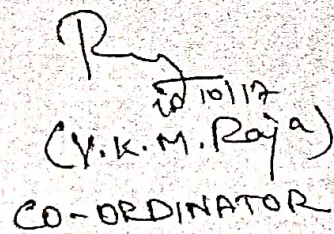 10/17
(V.K.M. Raja)
CO-ORDINATOR